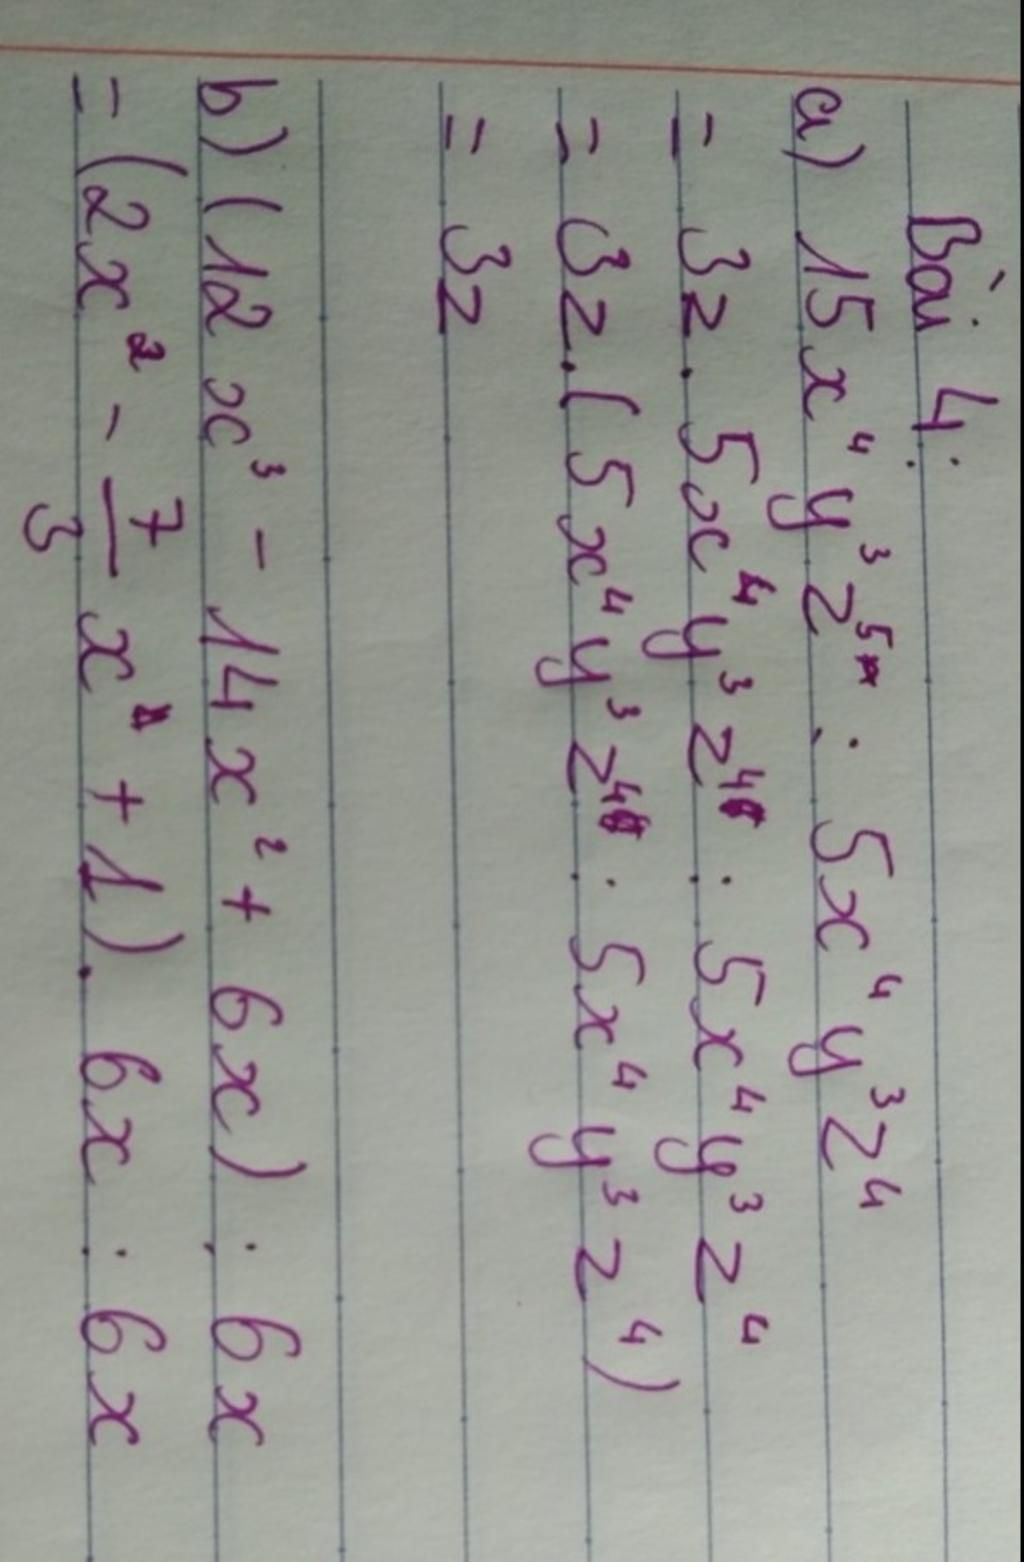 Bài 4:
a) 15x⁴y³z⁵ : 5x⁴y³z⁴
= 3z . 5x⁴y³z⁴ : 5x⁴y³z⁴
= 3z . (5x⁴y³z⁴ : 5x⁴y³z⁴)
= 3z
b) (12x³ - 14x² + 6x) : 6x
= (2x² - 7/3 x + 1) . 6x : 6x